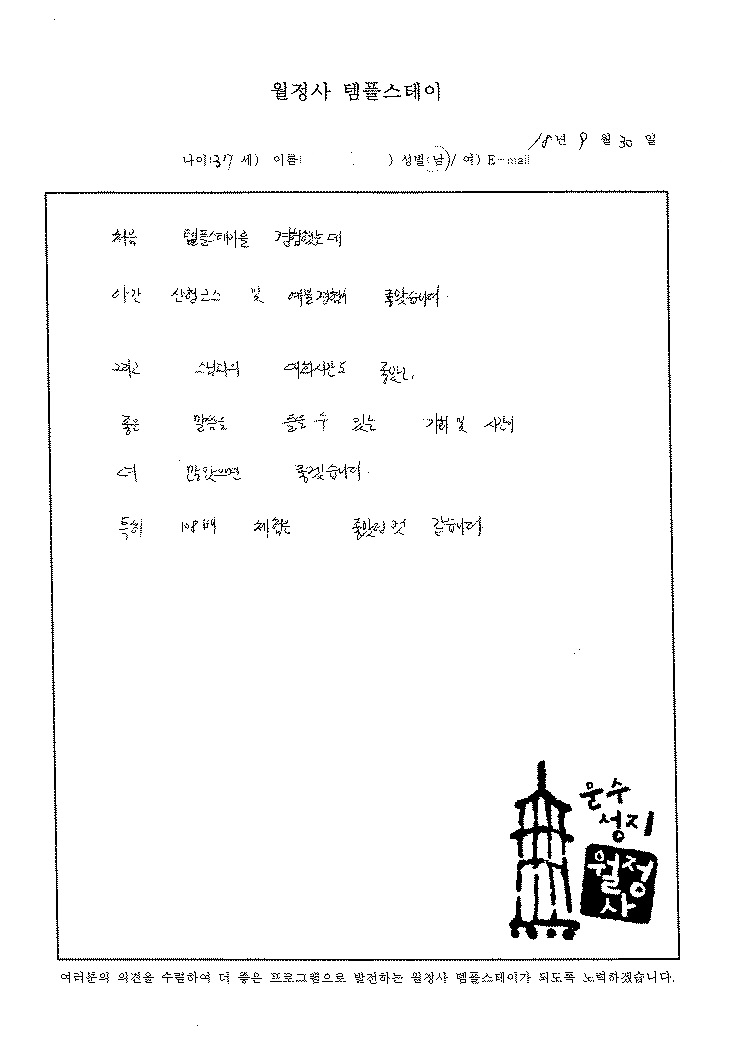 월정사 템플스테이
18년 9월 30일
나이(37세) 이름( ) 성별(남/여) E-mail
처음 템플스테이를 경험했는데
야간 산행코스 및 예불경험이 좋았습니다.
그리고 스님과의 대화시간도 좋았고,
좋은 말씀을 들을 수 있는 기회 및 시간이
더 많았으면 좋겠습니다.
특히 108배 체험은 좋았던 것 같습니다
문수
성지
월정
사
여러분의 의견을 수렴하여 더 좋은 프로그램으로 발전하는 월정사 템플스테이가 되도록 노력하겠습니다.